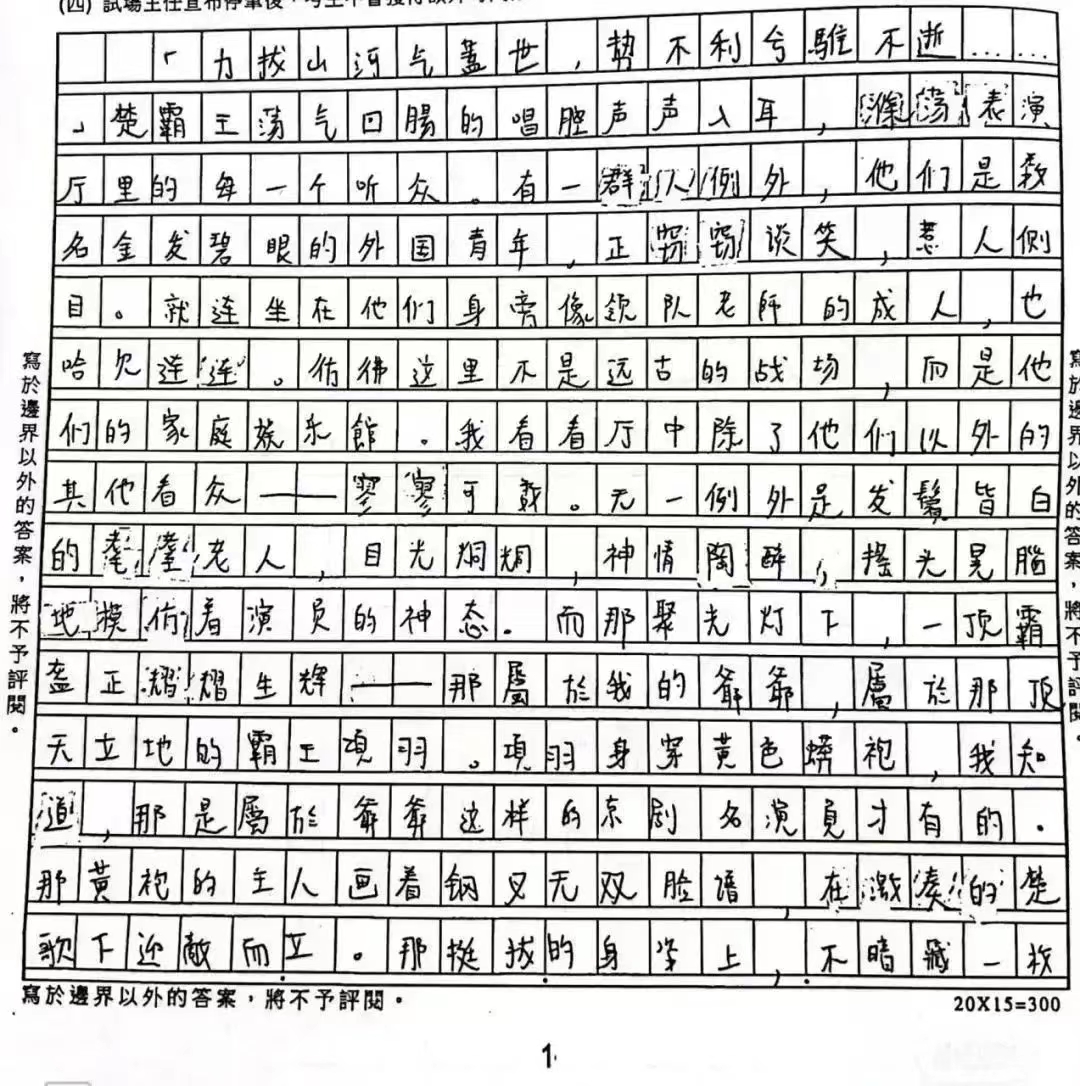 (四) 試場主任宣布停筆後，考生不會獲得額外時
「力拔山河气蓋世，势不利兮骓不逝……
」楚霸王荡气回腸的唱腔声声入耳，滌荡表演
厅里的每一个听众。有一群人例外，他们是数
名金发碧眼的外国青年，正窃窃谈笑，惹人侧
目。就连坐在他们身旁像领队老師的成人，也
哈欠连连。彷彿这里不是远古的战场，而是他
们的家庭娱乐館。我看看厅中除了他们以外的
其他看众——寥寥可数。无一例外是发鬓皆白
的耄耋老人，目光炯炯，神情陶醉，搖光晃腦
地模仿着演员的神态。而那聚光灯下，一顶霸
盔正熠熠生辉——那屬於我的爷爷，屬於那顶
天立地的霸王項羽。項羽身穿黃色蟒袍，我知
道，那是屬於爷爷这样的京剧名演員才有的。
那黃袍的主人画着钢叉无双脸谱，在激凑的楚
歌下迎敵而立。那挺拔的身姿上，不暗藏一枚
寫於邊界以外的答案，將不予評閱。
寫於邊界以外的答案，將不予評閱。
寫於邊界以外的答案，將不予評閱。
20X15=300
1